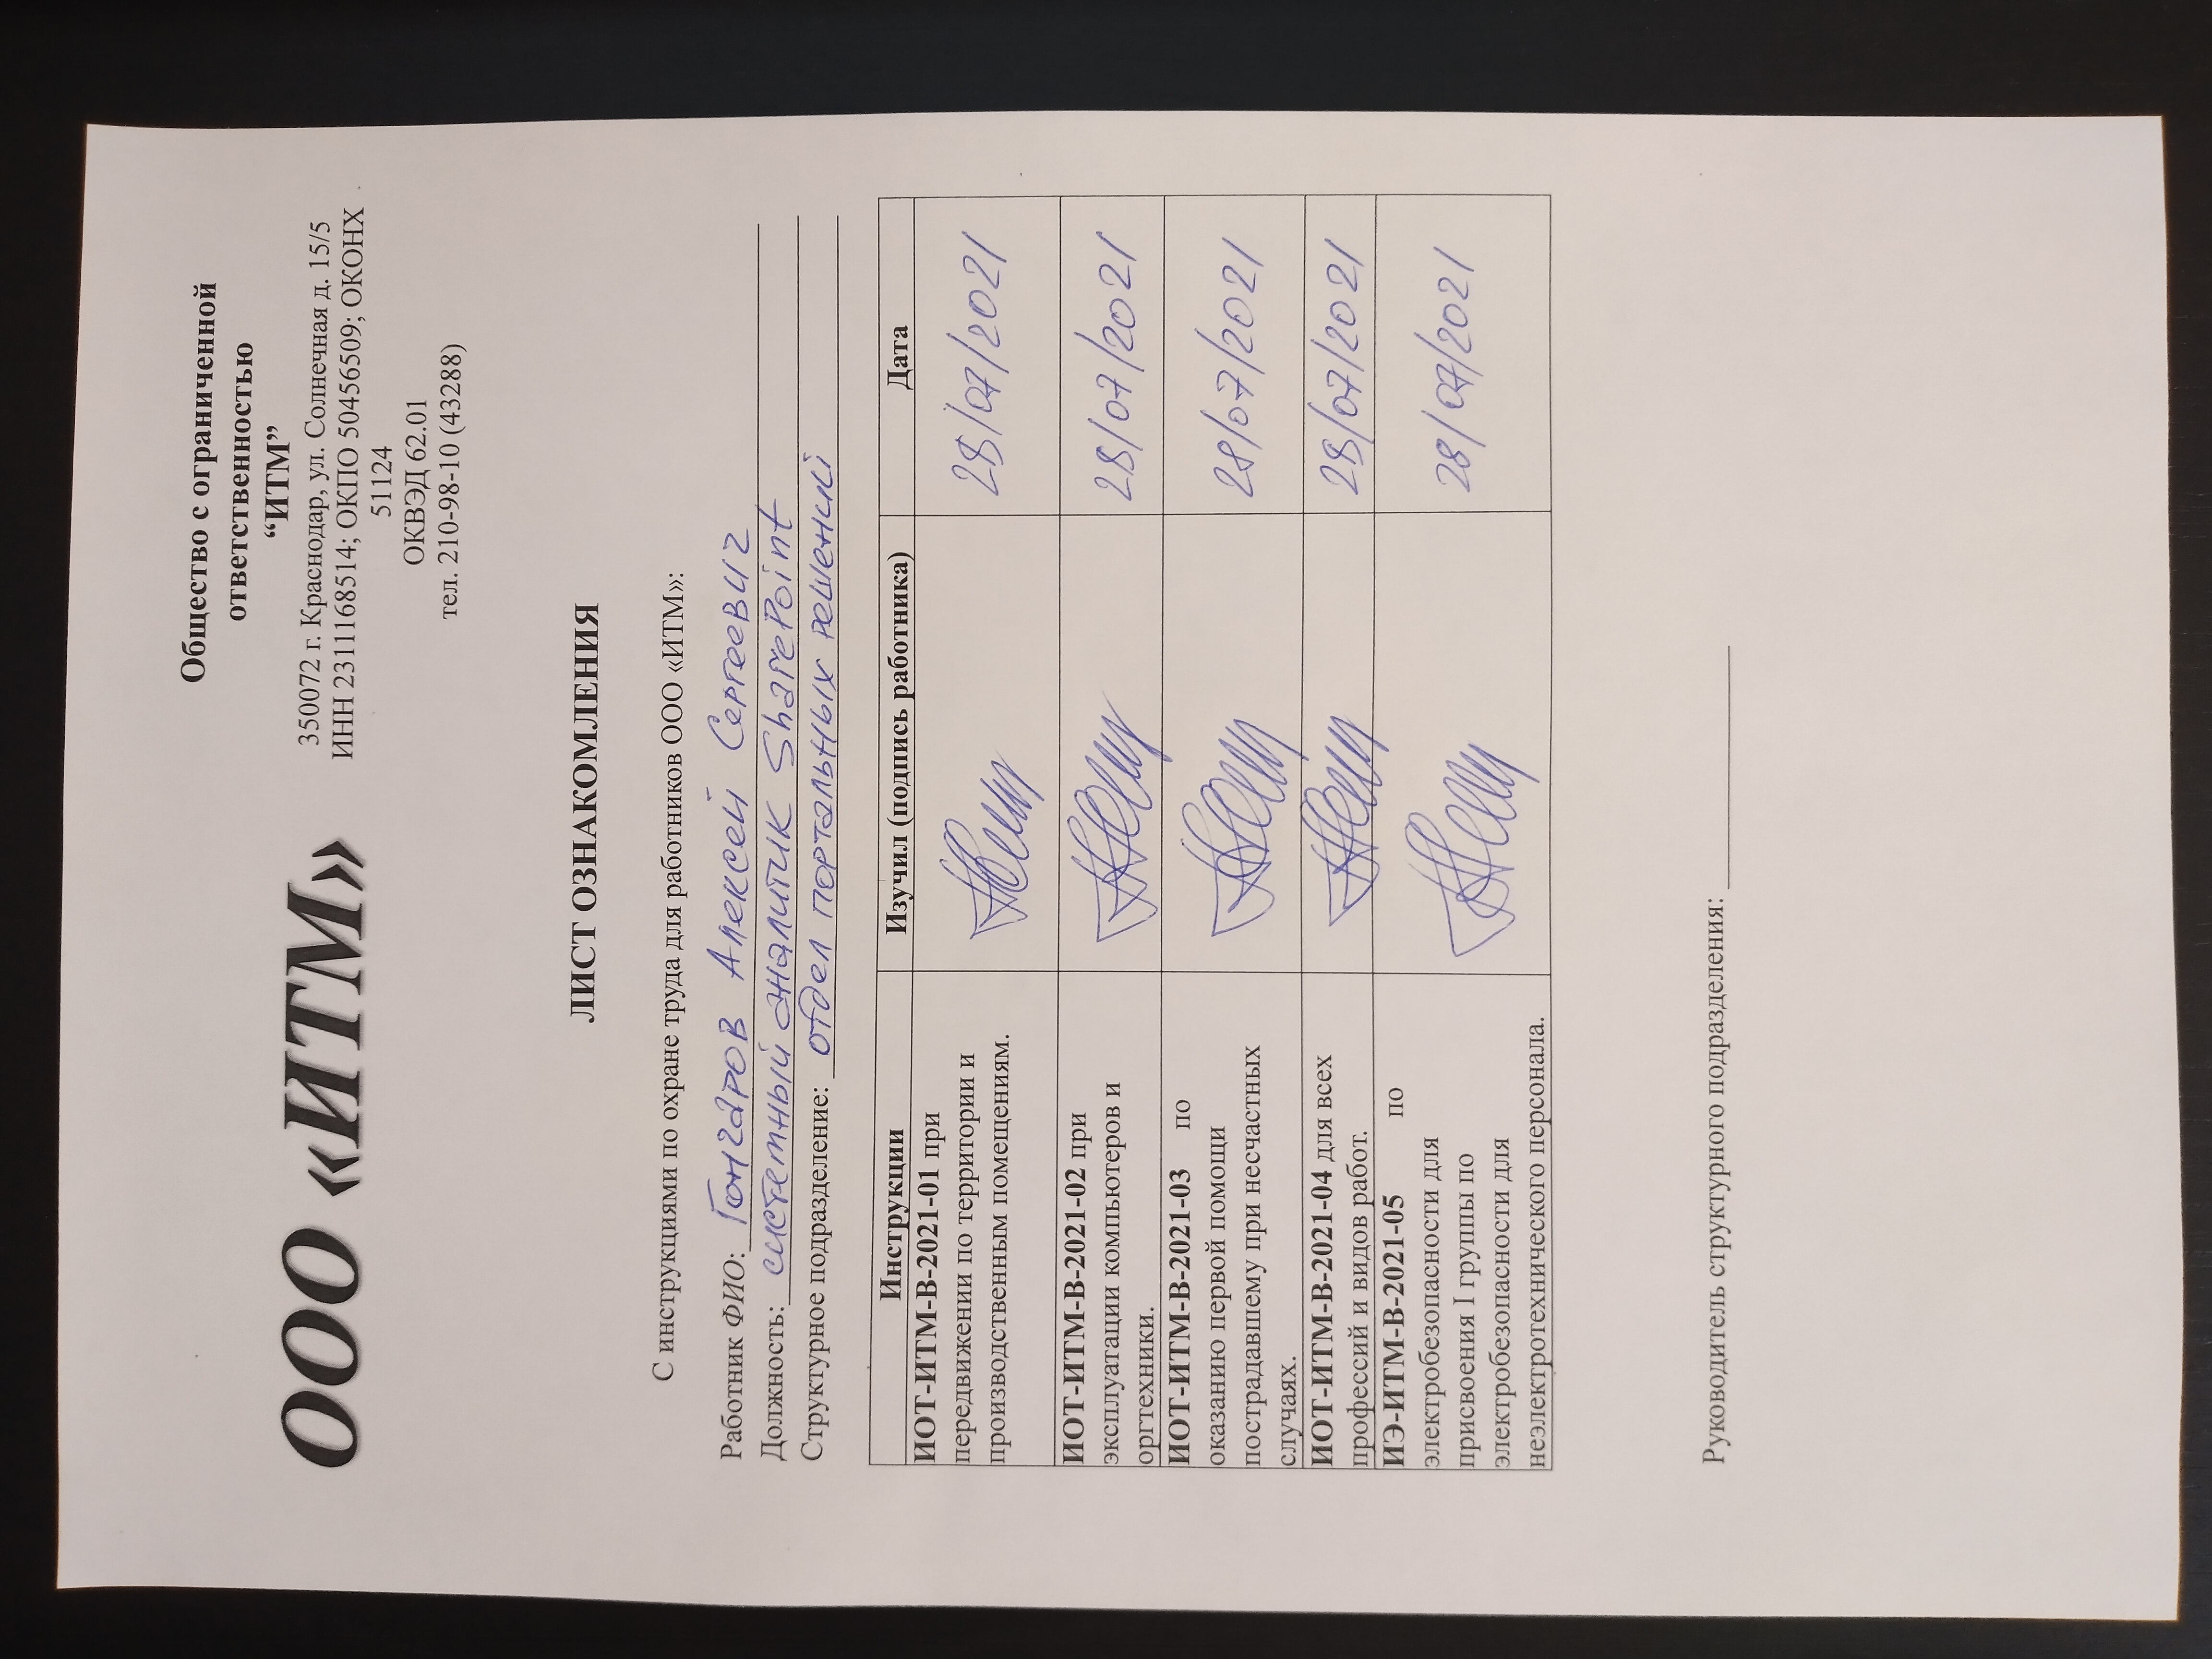 ООО «ИТМ»
Общество с ограниченной
ответственностью
“ИТМ”
350072 г. Краснодар, ул. Солнечная д. 15/5
ИНН 2311168514; ОКПО 50456509; ОКОНХ
51124
ОКВЭД 62.01
тел. 210-98-10 (43288)
ЛИСТ ОЗНАКОМЛЕНИЯ
С инструкциями по охране труда для работников ООО «ИТМ»:
Работник ФИО: Гончаров Алексей Сергеевич
Должность: системный аналитик SharePoint
Структурное подразделение: отдел портальных решений
Инструкции Изучил (подпись работника) Дата
ИОТ-ИТМ-В-2021-01 при
передвижении по территории и
производственным помещениям.
28/07/2021
ИОТ-ИТМ-В-2021-02 при
эксплуатации компьютеров и
оргтехники.
28/07/2021
ИОТ-ИТМ-В-2021-03 по
оказанию первой помощи
пострадавшему при несчастных
случаях.
28/07/2021
ИОТ-ИТМ-В-2021-04 для всех
профессий и видов работ.
28/07/2021
ИЭ-ИТМ-В-2021-05 по
электробезопасности для
присвоения I группы по
электробезопасности для
неэлектротехнического персонала.
28/07/2021
Руководитель структурного подразделения: